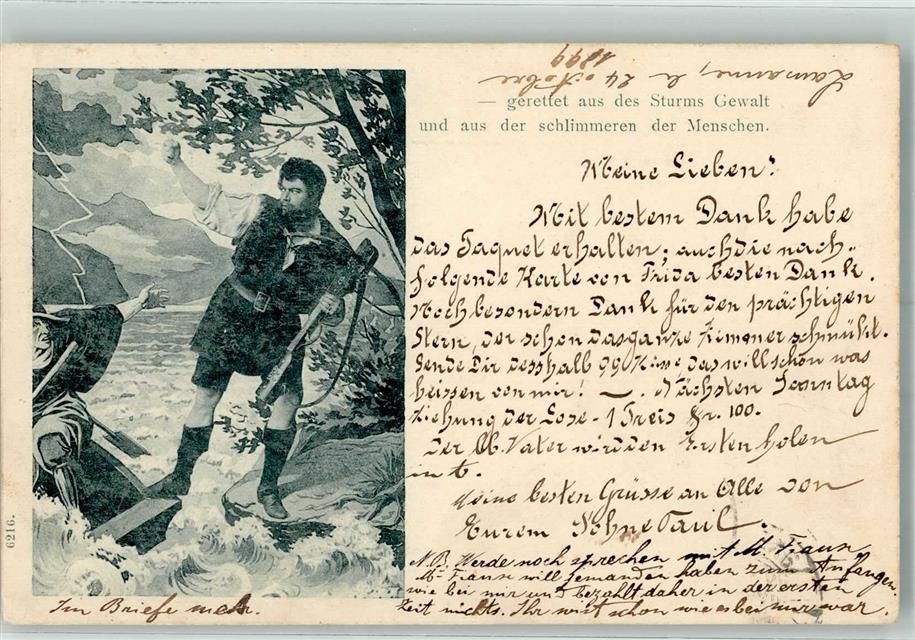 Lausanne, le 24 octobre
1899
— gerettet aus des Sturms Gewalt
und aus der schlimmeren der Menschen.
Meine Lieben!
Mit bestem Dank habe
das Paquet erhalten; auch die nach-
folgende Karte von Frida besten Dank.
Noch besondern Dank für den prächtigen
Stern, der schon das ganze Zimmer schmükt.
Sende Dir desshalb 99 Küsse das will schon was
heissen von mir! —. Nächsten Sonntag
Ziehung der Lose - 1 Preis Fr. 100.
Der lb. Vater wird den Ersten holen
in
Meine besten Grüsse an Alle von
Eurem Sohne Paul.
N.B. Werde noch sprechen mit M.
Mr. will jemanden haben zum Anfangen
wie bei mir unbezahlt daher in der ersten
Zeit nichts. Ihr wist schon wie es bei mir war.
Im Briefe mehr.
6216.